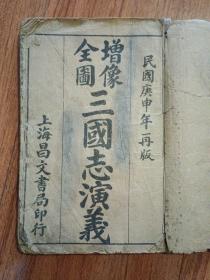 民國庚申年再版
增像全圖三國志演義
上海昌文書局印行